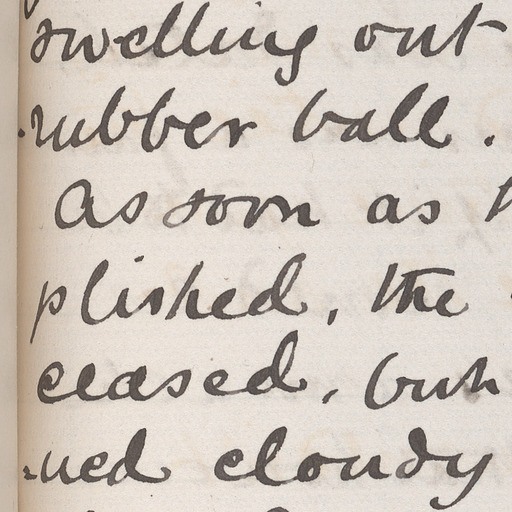 swelling out
rubber ball.
As soon as
plished, the
ceased, but
ned cloudy